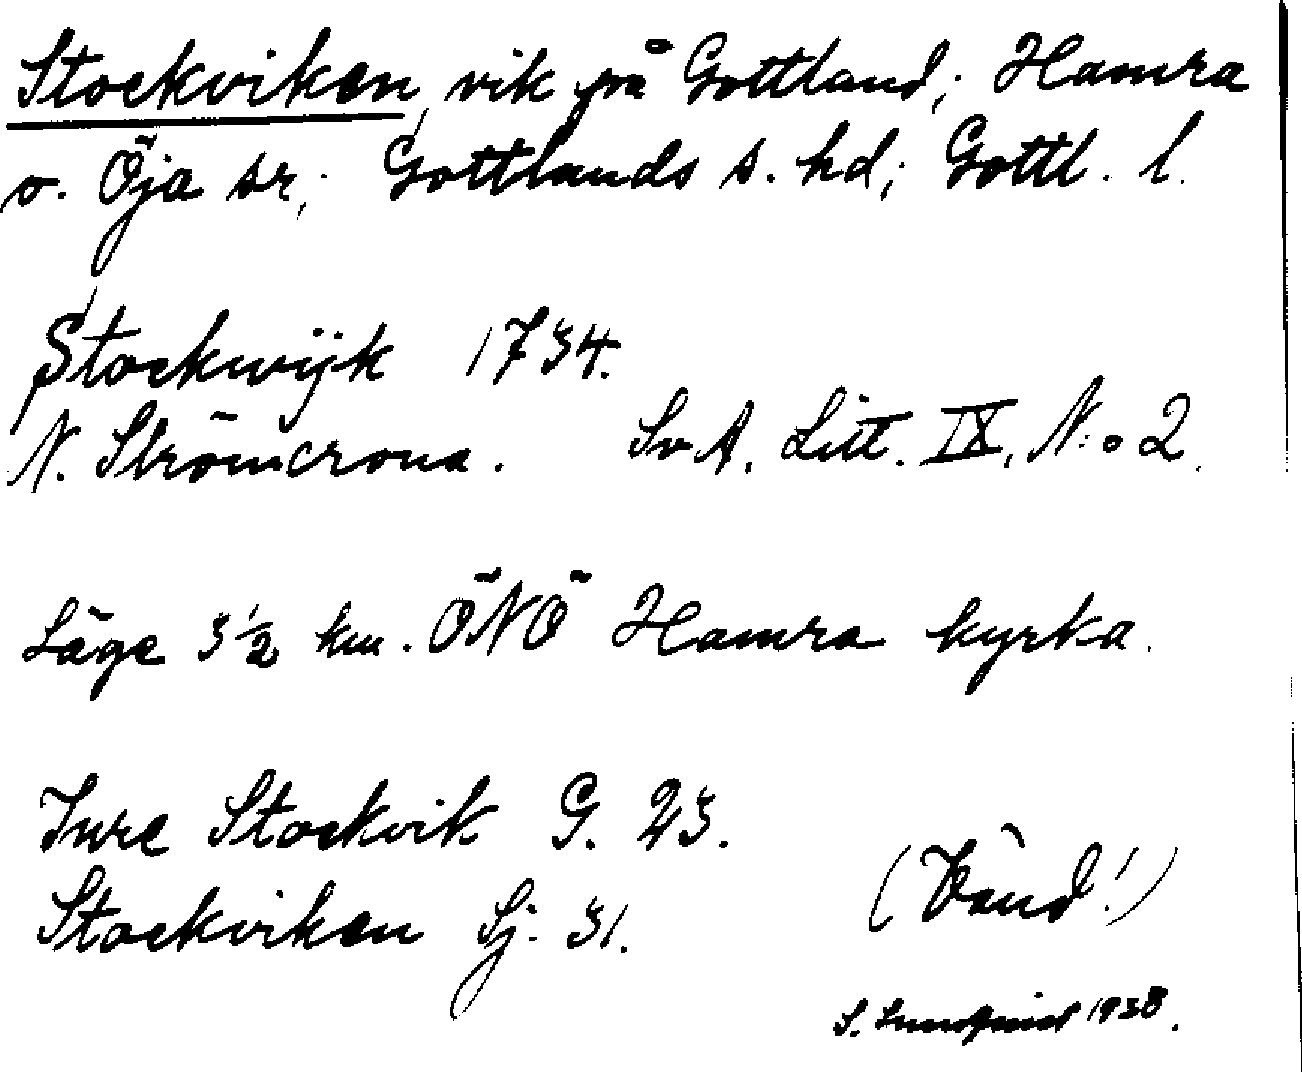 Stockviken, vik på Gottland; Hamra
o. Öja sr; Gottlands s. hd; Gottl. l.
Stockwijk 1734.
N. Strömcrona. Sv A. Litt. IX, N:o 2.
Läge 3 1/2 km. ÖNÖ Hamra kyrka.
Inre Stockvik G. 23.
Stockviken Sj. 31.
(Vänd!)
S. 1938.